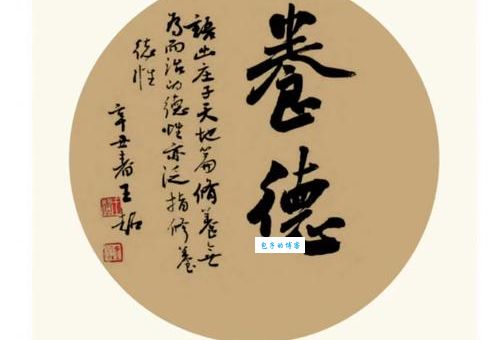 養德
語出庄子天地篇脩養无
为而治的德性亦泛指修養
德性
辛丑春王
包子的博客